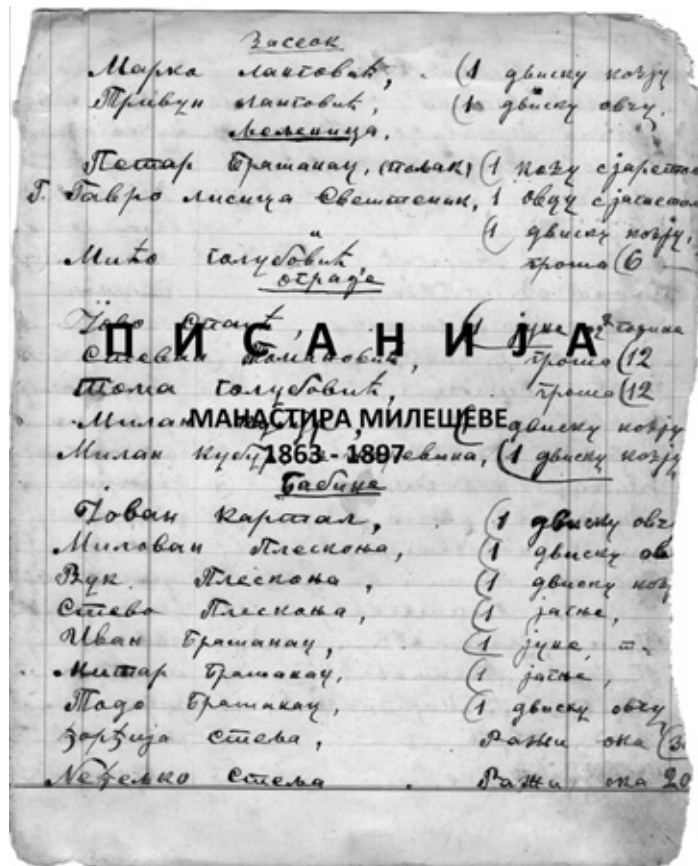 Засеок
Марко Лантовић, (1 двиску козју
Тривун Лантовић, (1 двиску овчу.
Мељеница.
Петар Брашанац, (пољак) (1 козу с јаретом
Г. Гавро Лисица Свештеник, 1 овцу с јагњетом
(1 двиску козју,
Мићо Голубовић гроша (6
ограђе
Јово (1 јуне годин
П И С А Н И Ј А
Стеван Томановић, гроша (12
Тома Голубовић, гроша (12
Милан (1 двиску козју
МАНАСТИРА МИЛЕШЕВЕ
Милан (1 двиску козју
1863 - 1897
Бабине
Јован Картал, (1 двиску овч
Милован Плескоња, (1 двиску ов
Вук Плескоња, (1 двиску коз
Стево Плескоња, (1 јагње,
Иван Брашанац, (1 јуне,
Митар Брашанац, (1 јагње,
Тодо Брашанац, (1 двиску овчу
Ђорђија Стеља, Ражи ока (3
Неђељко Стеља Ражи ока 20